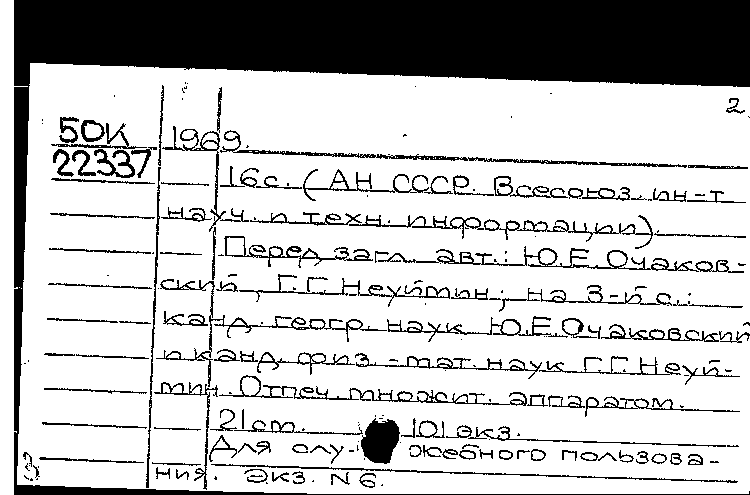 2
50К 1969.
22337 16с. (АН СССР. Всесоюз. ин-т
науч. и техн. информации).
Перед загл. авт.: Ю.Е. Очаков-
ский, Г.Г. Неуймин; на 3-й с.:
канд. геогр. наук Ю.Е. Очаковский
и канд. физ.-мат. наук Г.Г. Неуй-
мин. Отпеч. множит. аппаратом.
21 cm. 101 экз.
Для слу- жебного пользова-
3 ния. Экз. N 6.